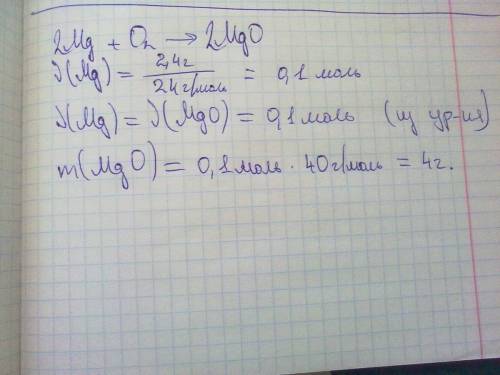 2Mg + O₂ → 2MgO
ν(Mg) = 2,4г / 24г/моль = 0,1 моль
ν(Mg) = ν(MgO) = 0,1 моль (из ур-ия)
m(MgO) = 0,1 моль · 40 г/моль = 4г.